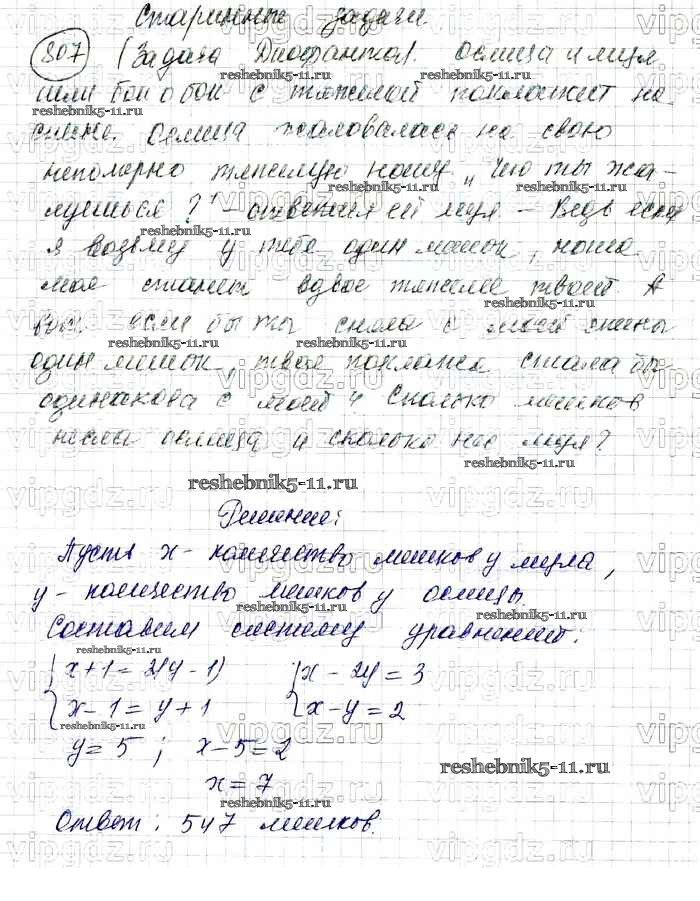 Старинные задачи.
807 (Задача Диофанта). Ослица и мул
шли бок о бок с тяжелой поклажей на
спине. Ослица жаловалась на свою
непомерно тяжелую ношу. „Что ты жа-
луешься?" – ответил ей мул – Ведь если
я возьму у тебя один мешок, ноша
моя станет вдвое тяжелее твоей. А
вот если бы ты сняла с моей спины
один мешок, твоя поклажа стала бы
одинакова с моей". Сколько мешков
несла ослица и сколько нес мул?
Решение:
Пусть x - количество мешков у мула,
y - количество мешков у ослицы.
Составим систему уравнений:
{x+1=2(y-1) {x-2y=3
{x-1=y+1 {x-y=2
y=5; x-5=2
x=7
Ответ: 5 и 7 мешков.
reshebnik5-11.ru
vipgdz.ru